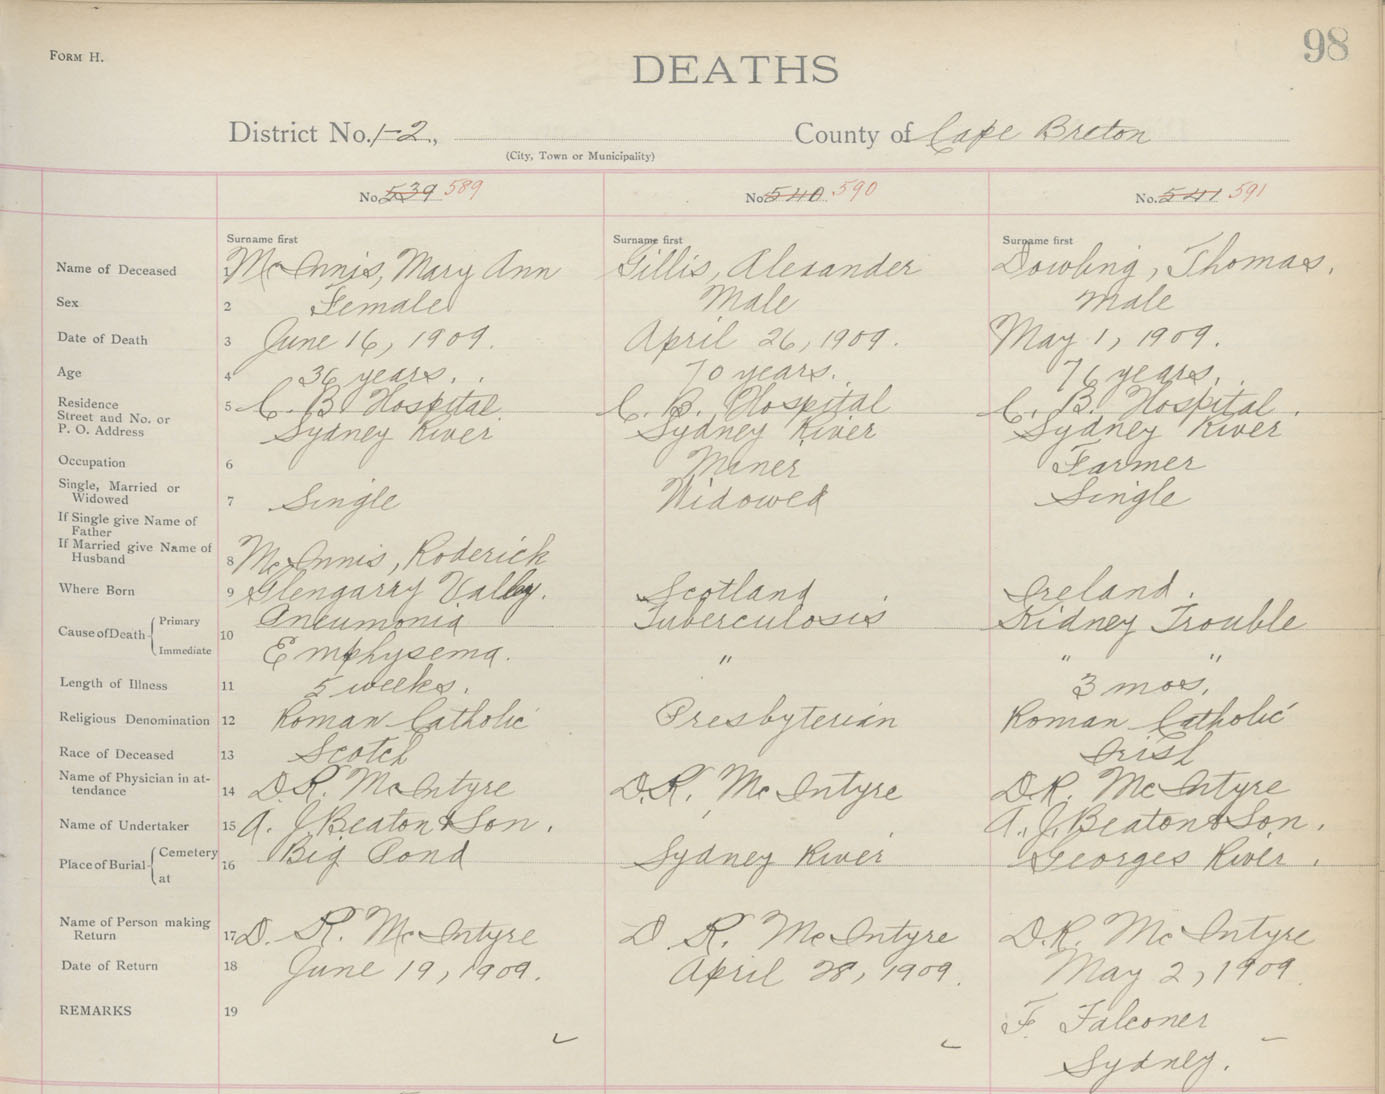 98
FORM H.
DEATHS
District No. 1-2, County of Cape Breton
(City, Town or Municipality)
No. 539 589 No. 540 590 No. 541 591
Surname first Surname first Surname first
Name of Deceased 1 McInnis, Mary Ann Gillis, Alexander Dowling, Thomas.
Sex 2 Female Male Male
Date of Death 3 June 16, 1909. April 26, 1909. May 1, 1909.
Age 4 36 years. 70 years. 76 years.
Residence
Street and No. or
P. O. Address
5 C. B. Hospital C. B. Hospital C. B. Hospital.
Sydney River Sydney River Sydney River
Occupation 6 Miner Farmer
Single, Married or
Widowed
7 Single Widowed Single
If Single give Name of
Father
If Married give Name of
Husband
8 McInnis, Roderick
Where Born 9 Glengarry Valley. Scotland. Ireland.
Cause of Death Primary 10 Pneumonia Tuberculosis Kidney Trouble
Immediate Emphysema. " " "
Length of Illness 11 5 weeks. 3 mos.
Religious Denomination 12 Roman Catholic Presbyterian Roman Catholic
Race of Deceased 13 Scotch Irish
Name of Physician in at-
tendance
14 D. R. McIntyre D. R. McIntyre D. R. McIntyre
Name of Undertaker 15 A. J. Beaton & Son. A. J. Beaton & Son.
Place of Burial Cemetery at 16 Big Pond Sydney River Georges River.
Name of Person making
Return
17 D. R. McIntyre D. R. McIntyre D. R. McIntyre
Date of Return 18 June 19, 1909. April 28, 1909. May 2, 1909.
REMARKS 19 F. Falconer
Sydney.